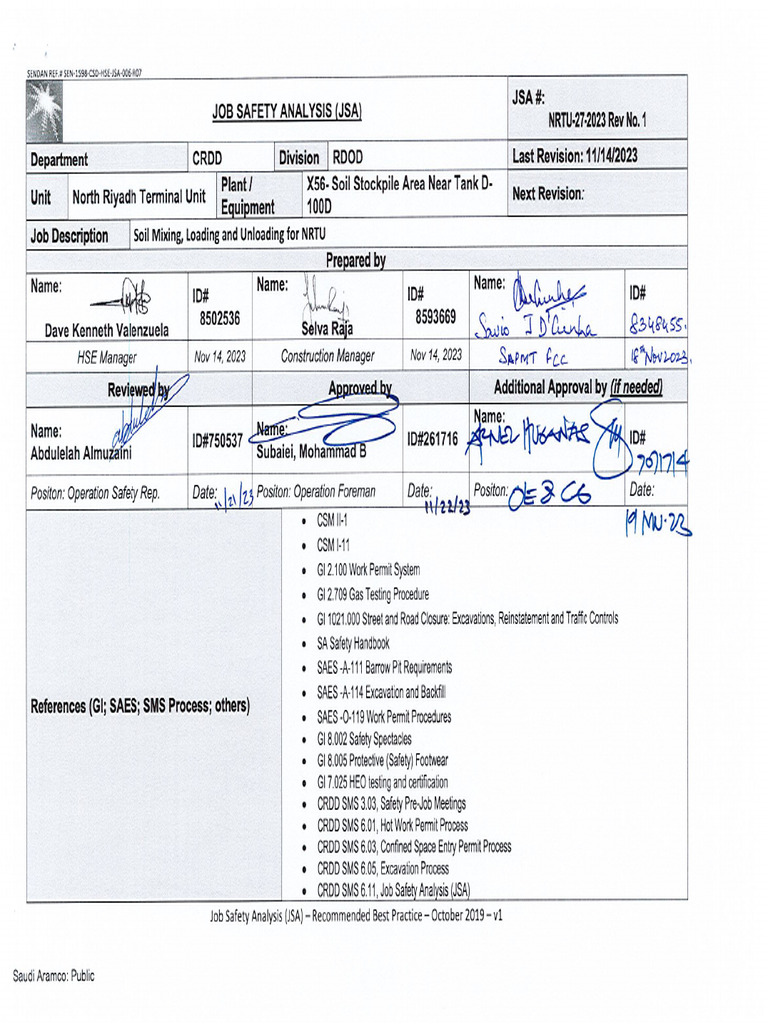 SENDAN REF.# SEN-1598-CSD-HSE-JSA-006 R07
JOB SAFETY ANALYSIS (JSA)
JSA #:
NRTU-27-2023 Rev No. 1
Department CRDD Division RDOD Last Revision: 11/14/2023
Unit North Riyadh Terminal Unit Plant / Equipment X56- Soil Stockpile Area Near Tank D-100D Next Revision:
Job Description Soil Mixing, Loading and Unloading for NRTU
Prepared by
Name: Dave Kenneth Valenzuela ID# 8502536 Name: Selva Raja ID# 8593669 Name: Savio J D'Cunha ID# 8348455.
HSE Manager Nov 14, 2023 Construction Manager Nov 14, 2023 SAPMT FCC 18th Nov 2023.
Reviewed by Approved by Additional Approval by (if needed)
Name: Abdulelah Almuzaini ID#750537 Name: Subaiei, Mohammad B ID#261716 Name: ID#
Positon: Operation Safety Rep. Date: 11/21/23 Positon: Operation Foreman Date: 11/22/23 Positon: Date:
References (GI; SAES; SMS Process; others)
• CSM II-1
• CSM I-11
• GI 2.100 Work Permit System
• GI 2.709 Gas Testing Procedure
• GI 1021.000 Street and Road Closure: Excavations, Reinstatement and Traffic Controls
• SA Safety Handbook
• SAES -A-111 Barrow Pit Requirements
• SAES -A-114 Excavation and Backfill
• SAES -O-119 Work Permit Procedures
• GI 8.002 Safety Spectacles
• GI 8.005 Protective (Safety) Footwear
• GI 7.025 HEO testing and certification
• CRDD SMS 3.03, Safety Pre-Job Meetings
• CRDD SMS 6.01, Hot Work Permit Process
• CRDD SMS 6.03, Confined Space Entry Permit Process
• CRDD SMS 6.05, Excavation Process
• CRDD SMS 6.11, Job Safety Analysis (JSA)
Job Safety Analysis (JSA) – Recommended Best Practice – October 2019 – v1
Saudi Aramco: Public